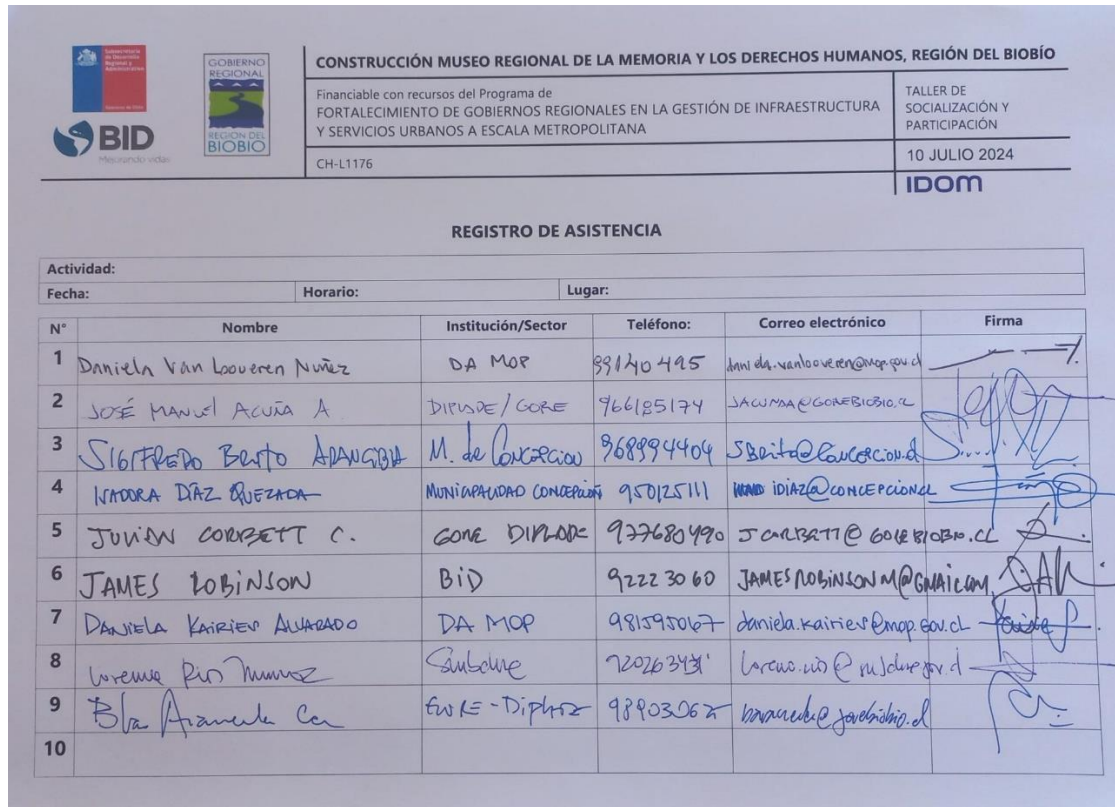 Subsecretaría de Desarrollo Regional y Administrativo
Gobierno de Chile
BID
Mejorando vidas
GOBIERNO REGIONAL
REGIÓN DEL BIOBIO
CONSTRUCCIÓN MUSEO REGIONAL DE LA MEMORIA Y LOS DERECHOS HUMANOS, REGIÓN DEL BIOBÍO
Financiable con recursos del Programa de
FORTALECIMIENTO DE GOBIERNOS REGIONALES EN LA GESTIÓN DE INFRAESTRUCTURA
Y SERVICIOS URBANOS A ESCALA METROPOLITANA
CH-L1176
TALLER DE
SOCIALIZACIÓN Y
PARTICIPACIÓN
10 JULIO 2024
IDOM
REGISTRO DE ASISTENCIA
Actividad:
Fecha: Horario: Lugar:
N° Nombre Institución/Sector Teléfono: Correo electrónico Firma
1 Daniela Van Looveren Nuñez DA MOP 99140495 daniela.vanlooveren@mop.gov.cl
2 JOSÉ MANUEL ACUÑA A DIPLADE/GORE 966185174 JACUNAA@GOREBIOBIO.CL
3 SIGIFREDO Brito ARANCIBIA M. de Concepcion 968994404 SBrito@Concepcion.cl
4 ISADORA DÍAZ QUEZADA MUNICIPALIDAD CONCEPCIÓN 950125111 IDIAZ@CONCEPCION.CL
5 JULIÁN CORBETT C. GORE DIPLADE 977680490 JCORBETT@GOREBIOBIO.CL
6 JAMES ROBINSON BID 92223060 JAMESROBINSONM@GMAIL.COM
7 DANIELA KAIRIES ALVARADO DA MOP 981595067 daniela.kairies@mop.gov.cl
8 Lorena Rios
9 Araneda
10